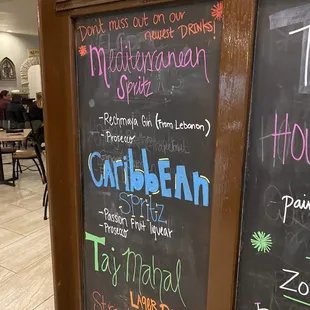 Don't miss out on our
newest DRINKS!
Mediterranean
Spritz
- Rechmaja Gin (from Lebanon)
- Prosecco
Caribbean
Spritz
- Passion fruit liquear
- Prosecco
Taj Mahal